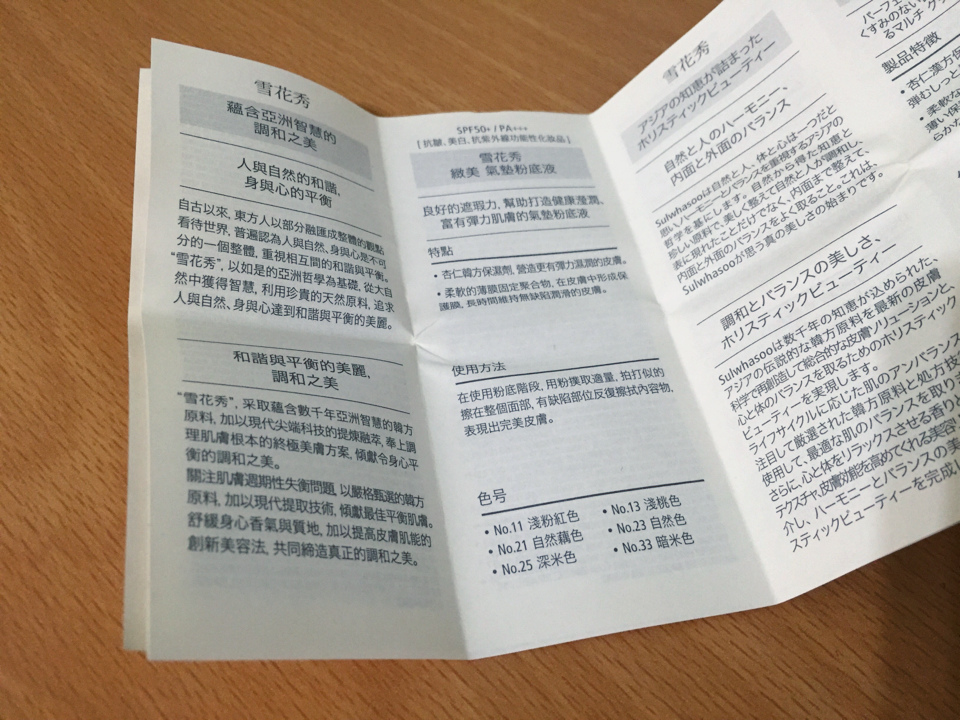 雪花秀
蘊含亞洲智慧的
調和之美
人與自然的和諧,
身與心的平衡
自古以來, 東方人以部分融匯成整體的觀點
看待世界, 普遍認為人與自然、身與心是不可
分的一個整體, 重視相互間的和諧與平衡。
"雪花秀", 以如是的亞洲哲學為基礎, 從大自
然中獲得智慧, 利用珍貴的天然原料, 追求
人與自然、身與心達到和諧與平衡的美麗。
和諧與平衡的美麗,
調和之美
"雪花秀", 采取蘊含數千年亞洲智慧的韓方
原料, 加以現代尖端科技的提煉融萃, 奉上調
理肌膚根本的終極美膚方案, 傾獻令身心平
衡的調和之美。
關注肌膚週期性失衡問題, 以嚴格甄選的韓方
原料, 加以現代提取技術, 傾獻最佳平衡肌膚。
舒緩身心香氣與質地, 加以提高皮膚肌能的
創新美容法, 共同締造真正的調和之美。
SPF50+ / PA+++
[ 抗皺, 美白, 抗紫外線功能性化妝品 ]
雪花秀
緻美 氣墊粉底液
良好的遮瑕力, 幫助打造健康瀅潤,
富有彈力肌膚的氣墊粉底液
特點
• 杏仁韓方保濕劑, 營造更有彈力濕潤的皮膚。
• 柔軟的薄膜固定聚合物, 在皮膚中形成保
護膜, 長時間維持無缺陷潤滑的皮膚。
使用方法
在使用粉底階段, 用粉撲取適量, 拍打似的
擦在整個面部, 有缺陷部位反復擦拭內容物,
表現出完美皮膚。
色号
• No.11 淺粉紅色 • No.13 淺桃色
• No.21 自然藕色 • No.23 自然色
• No.25 深米色 • No.33 暗米色
雪花秀
アジアの知恵が詰まった
ホリスティックビューティー
自然と人のハーモニー、
内面と外面のバランス
Sulwhasooは自然と人、体と心は一つだと
思いハーモニーとバランスを重視するアジアの
哲学を基にします。自然から得た知恵と
珍しい原料で、美しく整えて自然と人が調和し、
表に現れたことだけでなく、内面まで整えて、
内面と外面のバランスをよく取ること。これは、
Sulwhasooが思う真の美しさの始まりです。
調和とバランスの美しさ、
ホリスティックビューティー
Sulwhasooは数千年の知恵が込められた、
アジアの伝説的な韓方原料を最新の皮膚
科学で再創造して総合的な皮膚ソリューションと、
心と体のバランスを取るためのホリスティック
ビューティーを実現します。
ライフサイクルに応じた肌のアンバランス
注目して厳選された韓方原料と処方技
使用して、最適な肌のバランスを取りま
さらに、心と体をリラックスさせる香りと
テクスチャ、皮膚効能を高めてくれる美容
介し、ハーモニーとバランスの美
スティックビューティーを完成し
パーフェ
くすみのない
るマルチ ク
製品特徴
• 杏仁漢方保
弾もしっと
• 柔軟な
薄い保
らかた